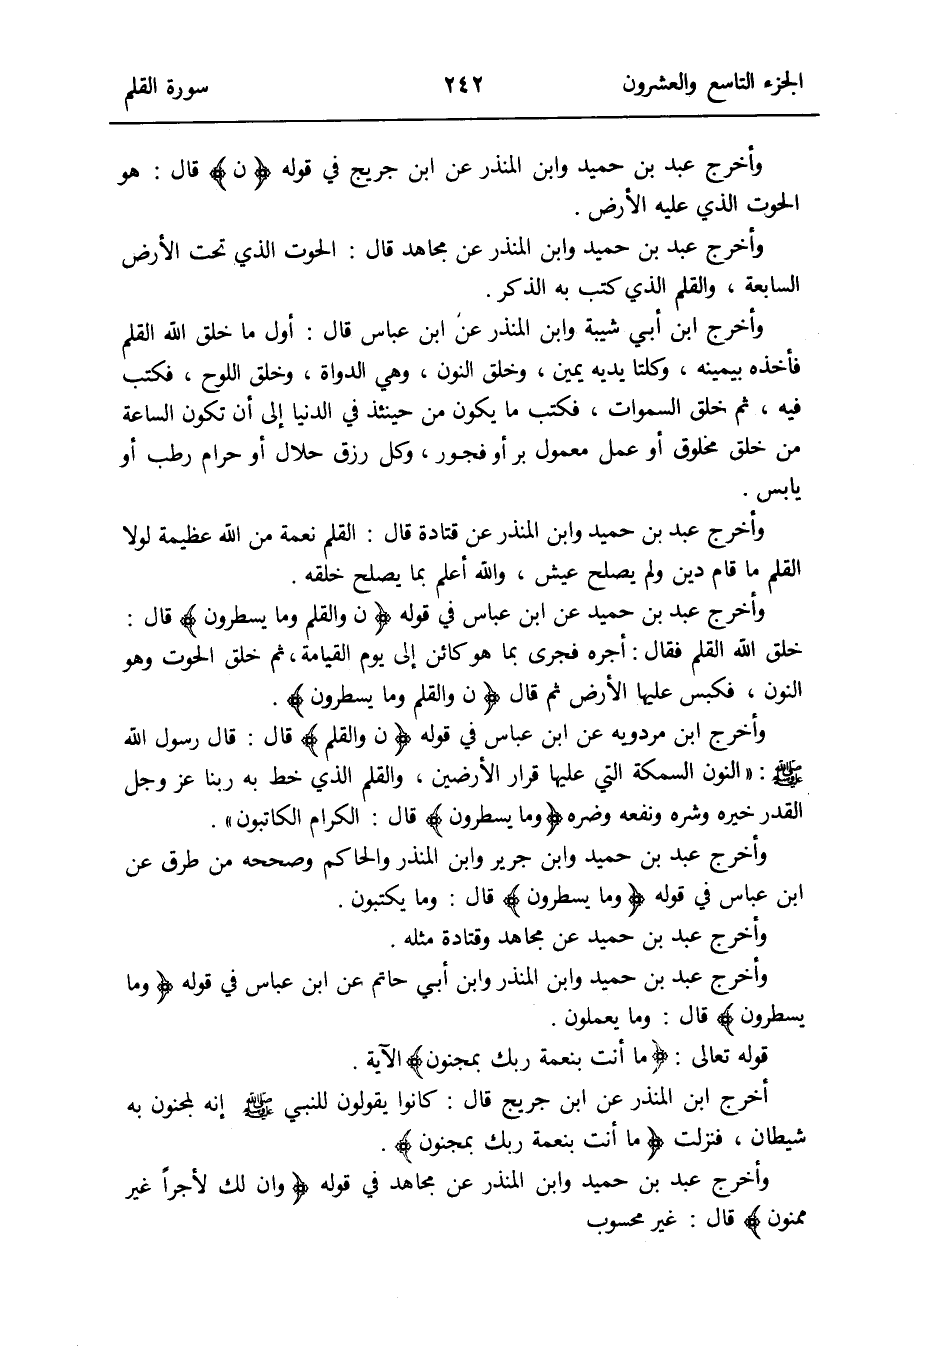 الجزء التاسع والعشرون ٢٤٢ سورة القلم
وأخرج عبد بن حميد وابن المنذر عن ابن جريج في قوله ﴿ ن ﴾ قال : هو
الحوت الذي عليه الأرض .
وأخرج عبد بن حميد وابن المنذر عن مجاهد قال : الحوت الذي تحت الأرض
السابعة ، والقلم الذي كتب به الذكر .
وأخرج ابن أبي شيبة وابن المنذر عن ابن عباس قال : أول ما خلق الله القلم
فأخذه بيمينه ، وكلتا يديه يمين ، وخلق النون ، وهي الدواة ، وخلق اللوح ، فكتب
فيه ، ثم خلق السموات ، فكتب ما يكون من حينئذ في الدنيا إلى أن تكون الساعة
من خلق مخلوق أو عمل معمول بر أو فجور ، وكل رزق حلال أو حرام رطب أو
يابس .
وأخرج عبد بن حميد وابن المنذر عن قتادة قال : القلم نعمة من الله عظيمة لولا
القلم ما قام دين ولم يصلح عيش ، والله أعلم بما يصلح خلقه .
وأخرج عبد بن حميد عن ابن عباس في قوله ﴿ ن والقلم وما يسطرون ﴾ قال :
خلق الله القلم فقال : أجره فجرى بما هو كائن إلى يوم القيامة ، ثم خلق الحوت وهو
النون ، فكبس عليها الأرض ثم قال ﴿ ن والقلم وما يسطرون ﴾ .
وأخرج ابن مردويه عن ابن عباس في قوله ﴿ ن والقلم ﴾ قال : قال رسول الله
ﷺ : «النون السمكة التي عليها قرار الأرضين ، والقلم الذي خط به ربنا عز وجل
القدر خيره وشره ونفعه وضره ﴿ وما يسطرون ﴾ قال : الكرام الكاتبون» .
وأخرج عبد بن حميد وابن جرير وابن المنذر والحاكم وصححه من طرق عن
ابن عباس في قوله ﴿ وما يسطرون ﴾ قال : وما يكتبون .
وأخرج عبد بن حميد عن مجاهد وقتادة مثله .
وأخرج عبد بن حميد وابن المنذر وابن أبي حاتم عن ابن عباس في قوله ﴿ وما
يسطرون ﴾ قال : وما يعملون .
قوله تعالى : ﴿ ما أنت بنعمة ربك بمجنون ﴾ الآية .
أخرج ابن المنذر عن ابن جريج قال : كانوا يقولون للنبي ﷺ إنه لمجنون به
شيطان ، فنزلت ﴿ ما أنت بنعمة ربك بمجنون ﴾ .
وأخرج عبد بن حميد وابن المنذر عن مجاهد في قوله ﴿ وان لك لأجراً غير
ممنون ﴾ قال : غير محسوب